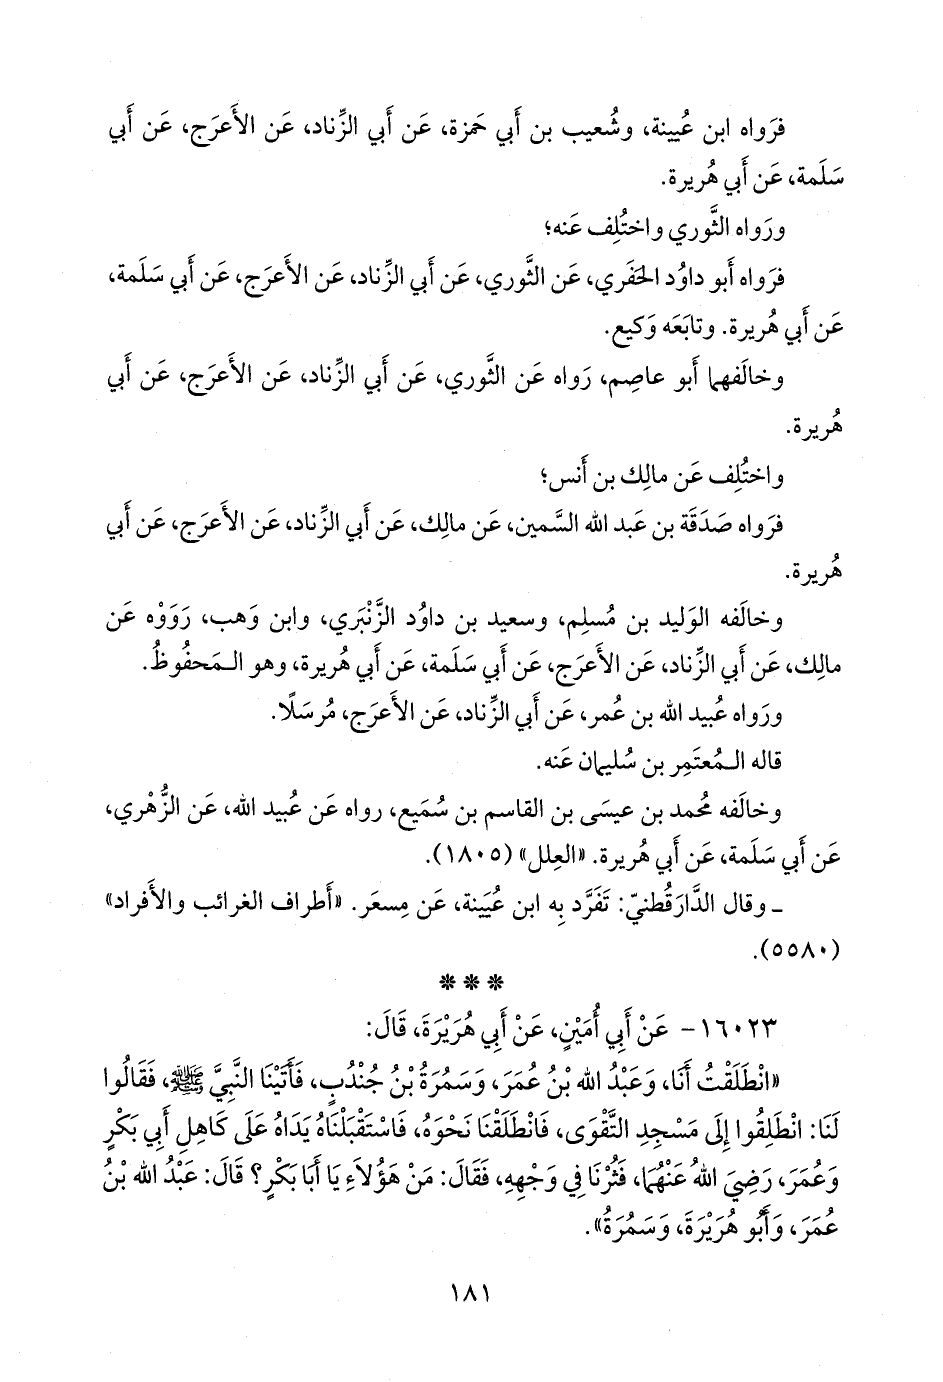 فرَواه ابن عُيينة، وشُعيب بن أَبي حَمزة، عَن أَبي الزِّناد، عَن الأَعرَج، عَن أَبي
سَلَمة، عَن أَبي هُريرة.
ورَواه الثَّوري واختُلِف عَنه؛
فرَواه أَبو داوُد الحَفَري، عَن الثَّوري، عَن أَبي الزِّناد، عَن الأَعرَج، عَن أَبي سَلَمة،
عَن أَبي هُريرة. وتابَعَه وَكيع.
وخالَفهما أَبو عاصِم، رَواه عَن الثَّوري، عَن أَبي الزِّناد، عَن الأَعرَج، عَن أَبي
هُريرة.
واختُلِف عَن مالِك بن أَنس؛
فرَواه صَدَقَة بن عَبد الله السَّمين، عَن مالِك، عَن أَبي الزِّناد، عَن الأَعرَج، عَن أَبي
هُريرة.
وخالَفه الوَليد بن مُسلِم، وسعيد بن داوُد الزَّنْبَري، وابن وَهب، رَوَوْه عَن
مالِك، عَن أَبي الزِّناد، عَن الأَعرَج، عَن أَبي سَلَمة، عَن أَبي هُريرة، وهو الـمَحفُوظُ.
ورَواه عُبيد الله بن عُمر، عَن أَبي الزِّناد، عَن الأَعرَج، مُرسَلًا.
قاله الـمُعتَمِر بن سُليمان عَنه.
وخالَفه مُحمد بن عيسَى بن القاسم بن سُمَيع، رواه عَن عُبيد الله، عَن الزُّهْري،
عَن أَبي سَلَمة، عَن أَبي هُريرة. «العِلل» (١٨٠٥).
ـ وقال الدَّارَقُطنيّ: تَفَرَّد بِه ابن عُيَينة، عَن مِسعَر. «أَطراف الغرائب والأَفراد»
(٥٥٨٠).
* * *
١٦٠٢٣- عَنْ أَبِي أُمَيْنٍ، عَنْ أَبِي هُرَيْرَةَ، قَالَ:
«انْطَلَقْتُ أَنَا، وَعَبْدُ الله بْنُ عُمَرَ، وَسَمُرَةُ بْنُ جُنْدُبٍ، فَأَتَيْنَا النَّبِيَّ ﷺ، فَقَالُوا
لَنَا: انْطَلِقُوا إِلَى مَسْجِدِ التَّقْوَى، فَانْطَلَقْنَا نَحْوَهُ، فَاسْتَقْبَلْنَاهُ يَدَاهُ عَلَى كَاهِلِ أَبِي بَكْرٍ
وَعُمَرَ، رَضِيَ اللهُ عَنْهُمَا، فَثُرْنَا فِي وَجْهِهِ، فَقَالَ: مَنْ هَؤُلَاءِ يَا أَبَا بَكْرٍ؟ قَالَ: عَبْدُ الله بْنُ
عُمَرَ، وَأَبُو هُرَيْرَةَ، وَسَمُرَةُ».
١٨١